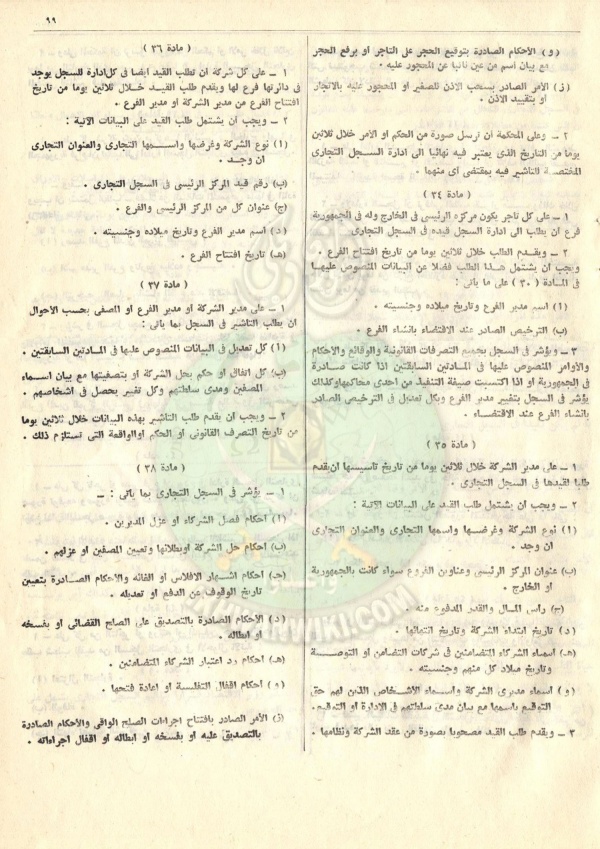 ٩٩
( و ) الأحكام الصادرة بتوقيع الحجر على التاجر أو برفع الحجر
مع بيان اسم من عين نائبا عن المحجور عليه .
( ز ) الأمر الصادر بسحب الاذن للصغير أو المحجور عليه بالاتجار
أو بتقييد الاذن .
٢ ــ وعلى المحكمة أن ترسل صورة من الحكم أو الأمر خلال ثلاثين
يوما من التاريخ الذى يعتبر فيه نهائيا الى ادارة السجل التجارى
المختصة للتأشير فيه بمقتضى أى منهما .
( مادة ٣٤ )
١ ــ على كل تاجر يكون مركزه الرئيسى فى الخارج وله فى الجمهورية
فرع أن يطلب الى ادارة السجل قيده فى السجل التجارى .
٢ ــ ويقدم الطلب خلال ثلاثين يوما من تاريخ افتتاح الفرع .
ويجب أن يشتمل هذا الطلب فضلا عن البيانات المنصوص عليها
فى المادة ( ٣٠ ) على ما يأتى :
( أ ) اسم مدير الفرع وتاريخ ميلاده وجنسيته .
(ب) الترخيص الصادر عند الاقتضاء بانشاء الفرع .
٣ ــ ويؤشر فى السجل بجميع التصرفات القانونية والوقائع والأحكام
والأوامر المنصوص عليها فى المادتين السابقتين اذا كانت صادرة
فى الجمهورية أو اذا اكتسبت صيغة التنفيذ من احدى محاكمها وكذلك
يؤشر فى السجل بتغيير مدير الفرع وبكل تعديل فى الترخيص الصادر
بانشاء الفرع عند الاقتضاء .
( مادة ٣٥ )
١ ــ على مدير الشركة خلال ثلاثين يوما من تاريخ تأسيسها أن يقدم
طلبا لقيدها فى السجل التجارى .
٢ ــ ويجب أن يشتمل طلب القيد على البيانات الآتية :
( أ ) نوع الشركة وغرضها واسمها التجارى والعنوان التجارى
ان وجد .
(ب) عنوان المركز الرئيسى وعناوين الفروع سواء كانت بالجمهورية
أو الخارج .
(جـ) رأس المال والقدر المدفوع منه .
( د ) تاريخ ابتداء الشركة وتاريخ انتهائها .
(هـ) أسماء الشركاء المتضامنين فى شركات التضامن أو التوصية
وتاريخ ميلاد كل منهم وجنسيته .
( و ) أسماء مديرى الشركة وأسماء الأشخاص الذين لهم حق
التوقيع باسمها مع بيان مدى سلطتهم فى الادارة أو التوقيع .
٣ ــ ويقدم طلب القيد مصحوبا بصورة من عقد الشركة ونظامها .
( مادة ٣٦ )
١ ــ على كل شركة أن تطلب القيد أيضا فى كل ادارة للسجل يوجد
فى دائرتها فرع لها ويقدم طلب القيد خلال ثلاثين يوما من تاريخ
افتتاح الفرع من مدير الشركة أو مدير الفرع .
٢ ــ ويجب أن يشتمل طلب القيد على البيانات الآتية :
( أ ) نوع الشركة وغرضها واسمها التجارى والعنوان التجارى
ان وجد .
(ب) رقم قيد المركز الرئيسى فى السجل التجارى .
(جـ) عنوان كل من المركز الرئيسى والفرع .
( د ) اسم مدير الفرع وتاريخ ميلاده وجنسيته .
(هـ) تاريخ افتتاح الفرع .
( مادة ٣٧ )
١ ــ على مدير الشركة أو مدير الفرع أو المصفى بحسب الأحوال
أن يطلب التأشير فى السجل بما يأتى :
( أ ) كل تعديل فى البيانات المنصوص عليها فى المادتين السابقتين .
(ب) كل اتفاق أو حكم بحل الشركة أو بتصفيتها مع بيان أسماء
المصفين ومدى سلطتهم وكل تغيير يحصل فى أشخاصهم .
٢ ــ ويجب أن يقدم طلب التأشير بهذه البيانات خلال ثلاثين يوما
من تاريخ التصرف القانونى أو الحكم أو الواقعة التى تستلزم ذلك .
( مادة ٣٨ )
١ ــ يؤشر فى السجل التجارى بما يأتى :
( أ ) أحكام فصل الشركاء أو عزل المديرين .
(ب) أحكام حل الشركة أو بطلانها وتعيين المصفين أو عزلهم .
(جـ) أحكام اشهار الافلاس أو الغائه والأحكام الصادرة بتعيين
تاريخ الوقوف عن الدفع أو تعديله .
( د ) الأحكام الصادرة بالتصديق على الصلح القضائى أو بفسخه
أو ابطاله .
(هـ) أحكام رد اعتبار الشركاء المتضامنين .
( و ) أحكام اقفال التفليسة أو اعادة فتحها .
( ز ) الأمر الصادر بافتتاح اجراءات الصلح الواقى والأحكام الصادرة
بالتصديق عليه أو بفسخه أو ابطاله أو اقفال اجراءاته .